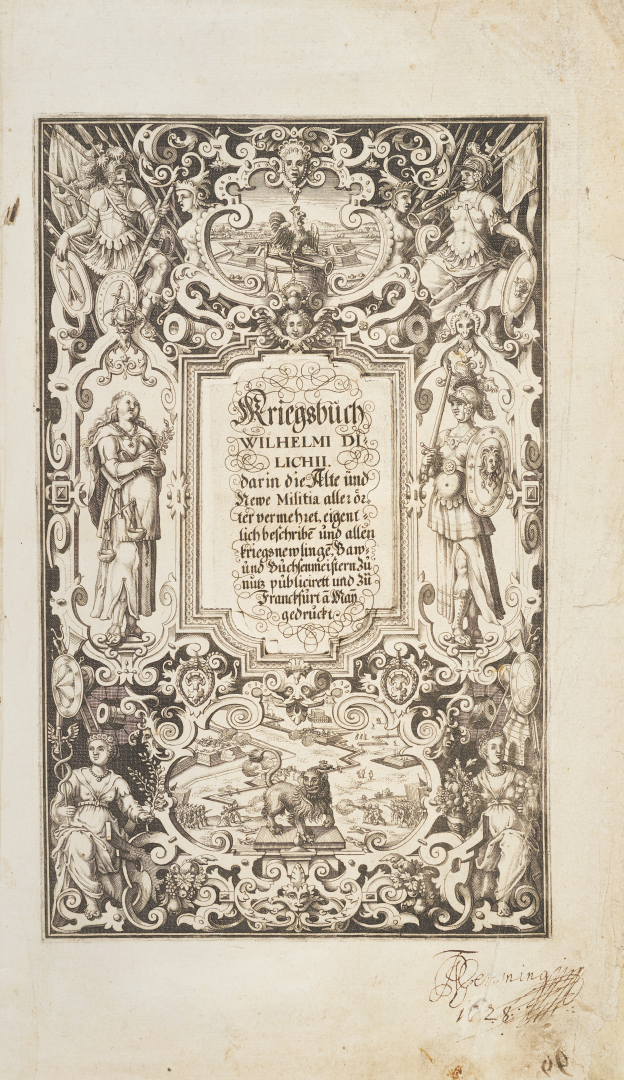 Kriegsbüch
WILHELMI DI-
LICHII.
darin die Alte und
Newe Militia aller ör-
ter vermehret, eigent-
lich beschribē und allen
kriegsnewlingē, Baw-
und Büchsenmeistern zu
nutz publicirett und zu
Franckfurt a May
gedruckt.
1628